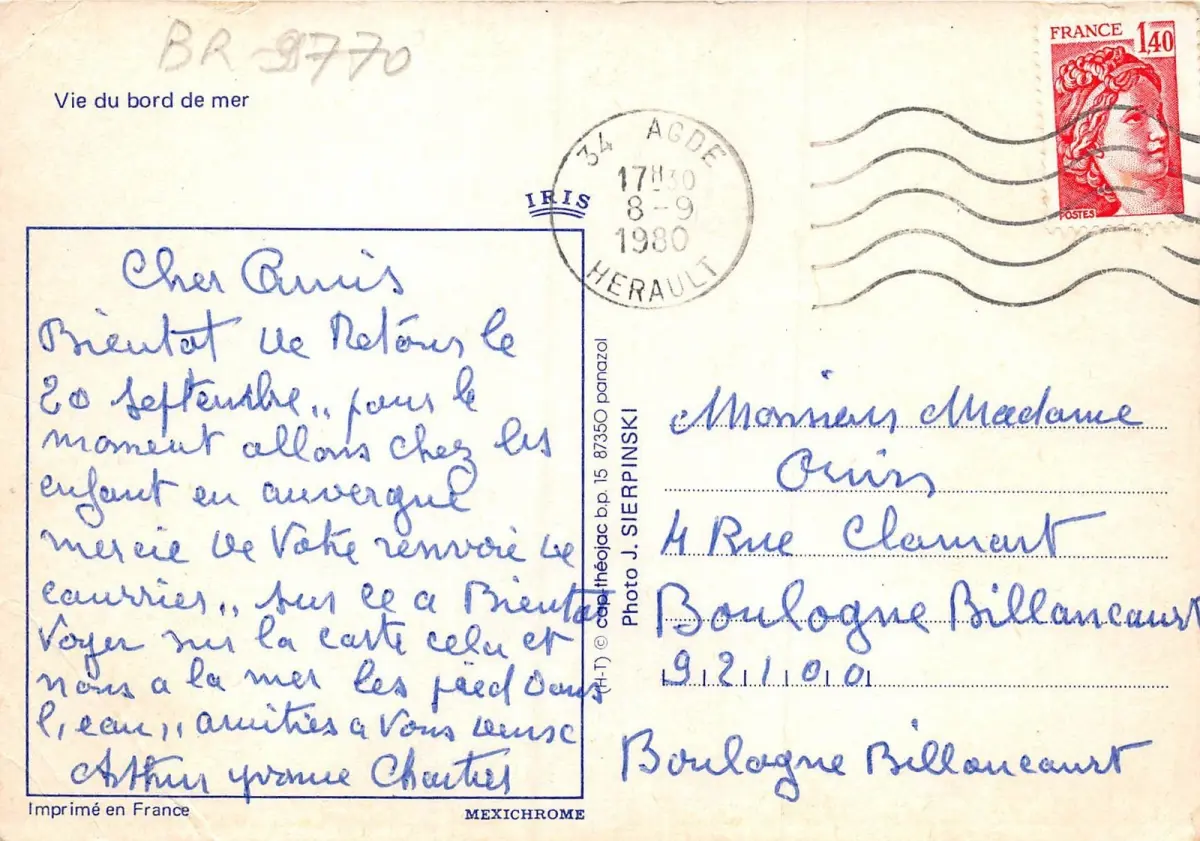 BR 9770
Vie du bord de mer
FRANCE 1,40
POSTES
34 AGDE
17H30
8-9
1980
HERAULT
IRIS
Cher Amis
Bientot de Retour le
20 Septembre,, pour le
moment allons chez les
enfant en auvergne
mercie de Votre renvoie de
courrier,, sur ce a Bientot
Voyer sur la carte celui et
nous a la mer les pied dans
l,eau,, amitiés a Vous deux
Arthur yvonne
Imprimé en France
MEXICHROME
(H-T) © cap-théojac b.p. 15 87350 panazol
Photo J. SIERPINSKI
Monsieur Madame
4 Rue Clamart
Boulogne Billancourt
92100
Boulogne Billancourt